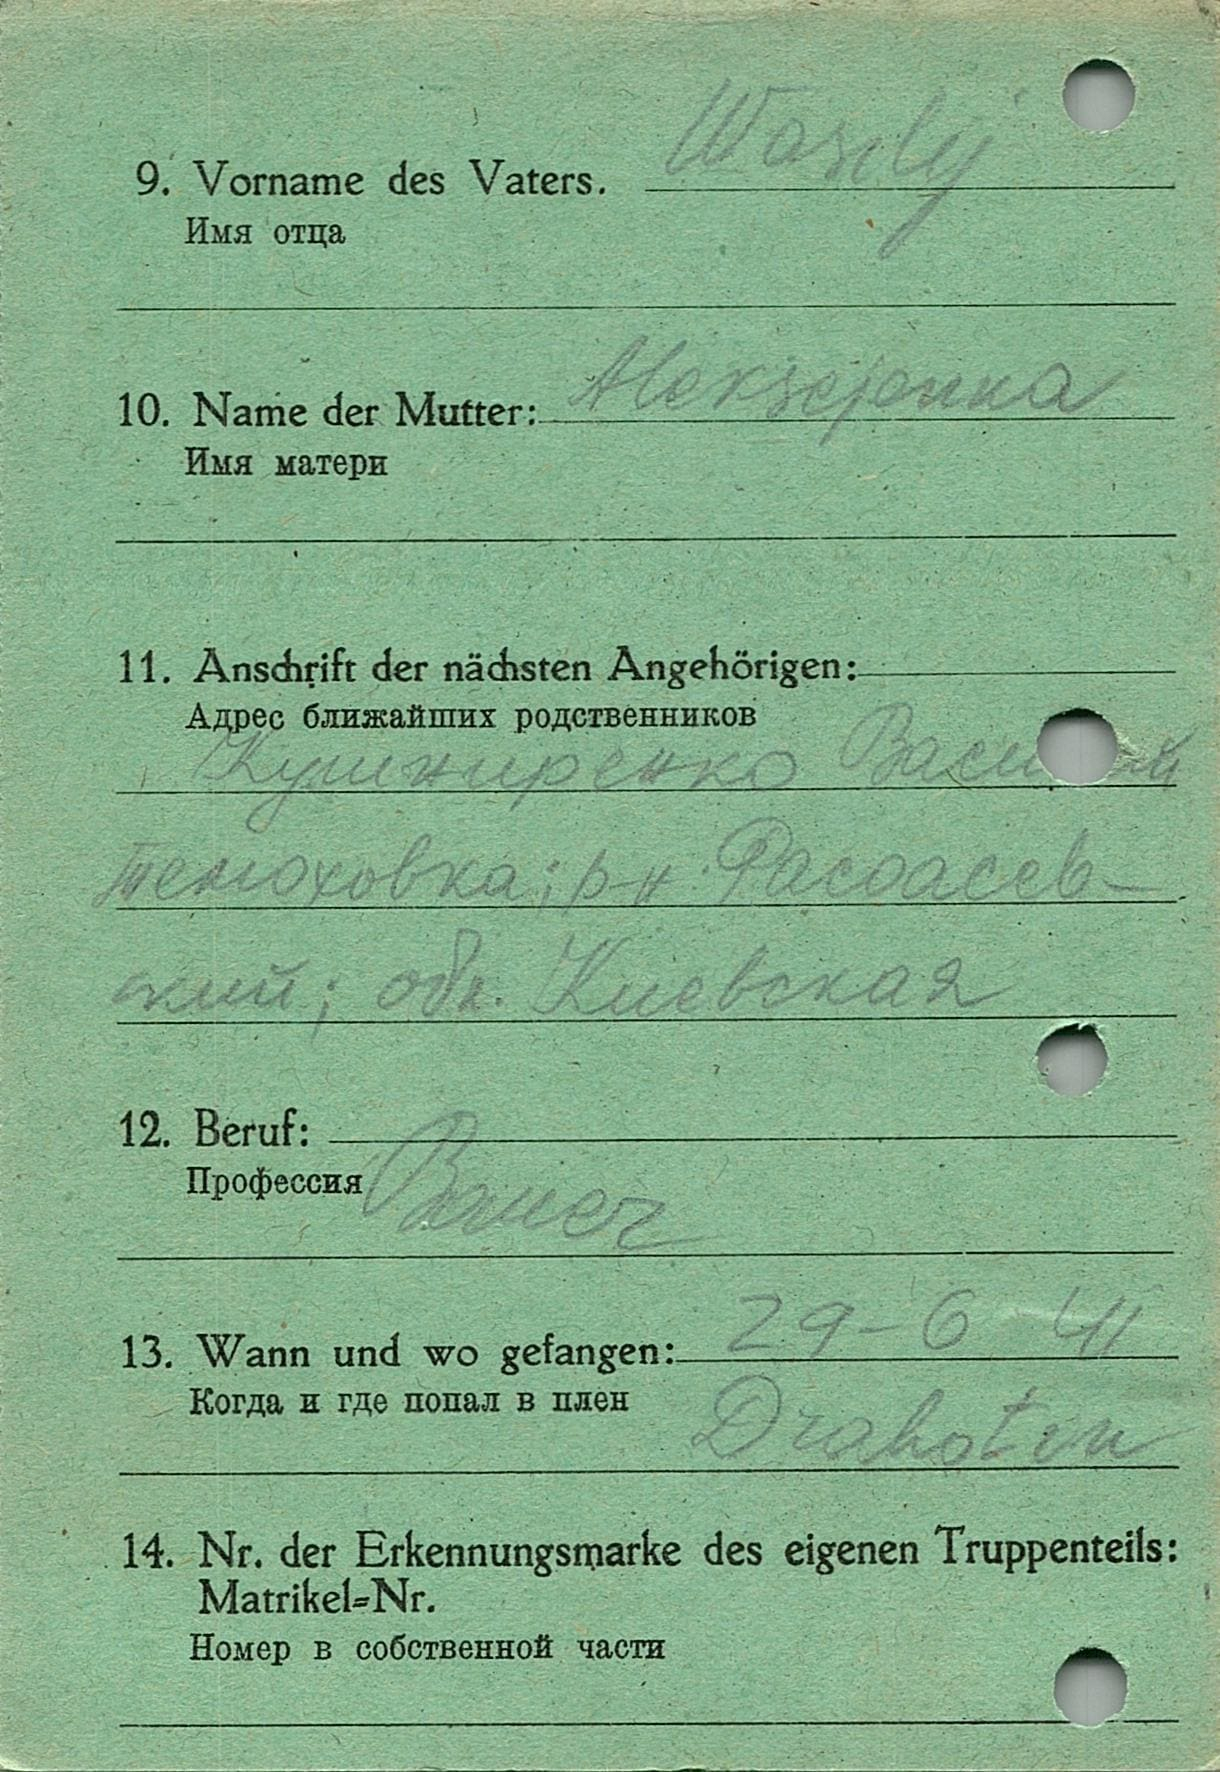 9. Vorname des Vaters. Wasilij
Имя отца
10. Name der Mutter: Aleksejenna
Имя матери
11. Anschrift der nächsten Angehörigen:
Адрес ближайших родственников
Кушниренко
р-н
ский; обл. Киевская
12. Beruf:
Профессия Bauer
13. Wann und wo gefangen: 29-6 41
Когда и где попал в плен
14. Nr. der Erkennungsmarke des eigenen Truppenteils:
Matrikel=Nr.
Номер в собственной части